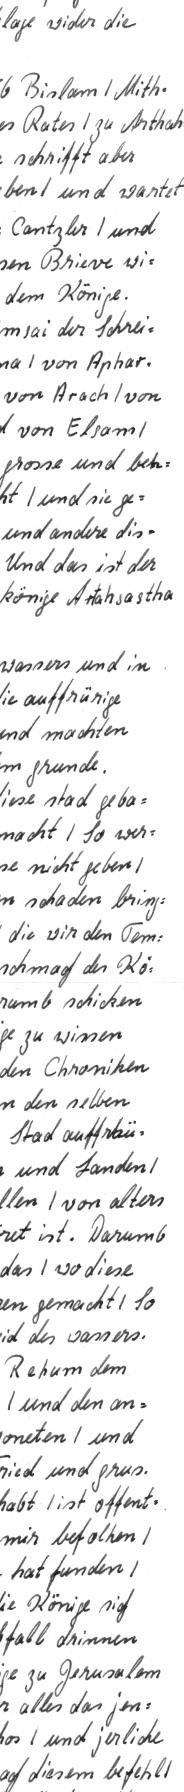 klage wider die
b Bislam / Mith-
es Rates / zu Arthah
schrifft aber
ben / und wartet
Cantzler / und
sen Brieve wi=
dem Könige.
msai der Schrei=
na / von Aphar.
von Arach / von
d von Elsam /
grosse und beh=
ht / und sie ge=
und andere dis=
Und das ist der
könige Artahsastha
wassers und in
die auffrürige
und machten
em grunde.
diese stad geba=
macht / So wer=
se nicht geben /
en schaden bring=
die wir den Tem=
schmach des Kö=
rumb schicken
ge zu wissen
den Chroniken
in den selben
Stad auffrhü=
n und Landen /
llen / von alters
ret ist. Darumb
das / wo diese
ren gemacht / So
eid des wassers.
Rehum dem
/ und den an=
oneten / und
Fried und grus.
habt / ist offent=
mir befolhen /
hat funden /
die Könige sich
bfall drinnen
ige zu Jerusalem
er alles das jen=
hos / und jerliche
ach diesem befehl /